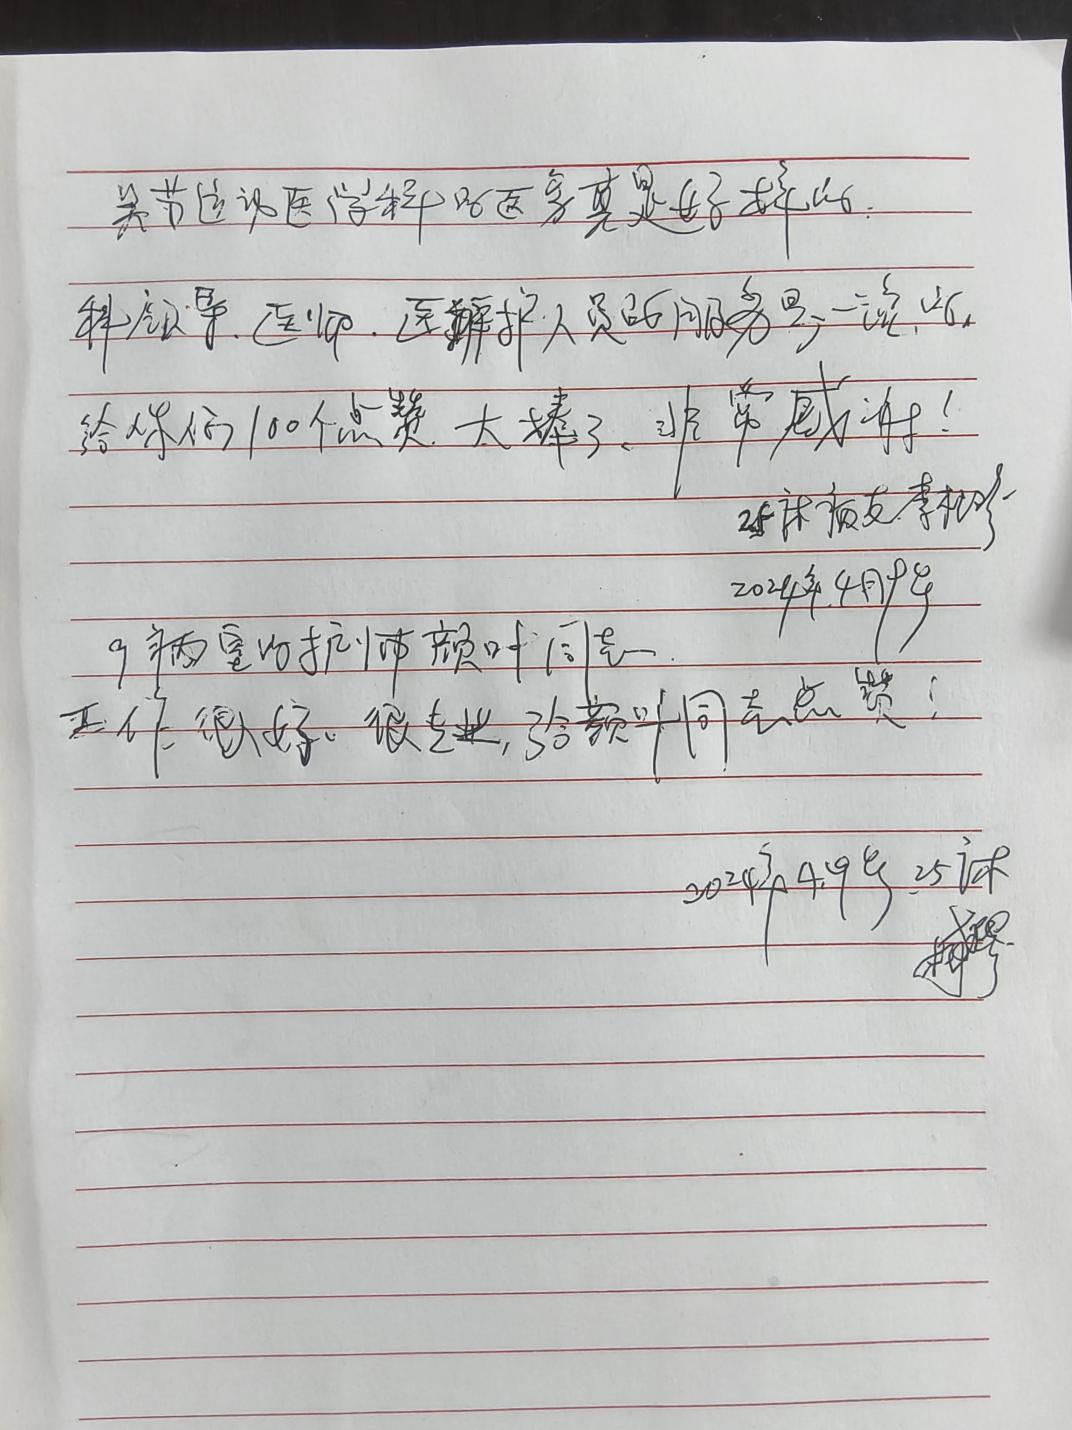 关节运动医学科的医务真是好样的.
科领导.医师.医护人员的服务是一流的.
给你们100个点赞.太棒了、非常感谢!
25床病友李
2024年4月9号
9病室的护师颜叶同志.
工作很好。很专业,给颜叶同志点赞!
2024年4.9号.25床